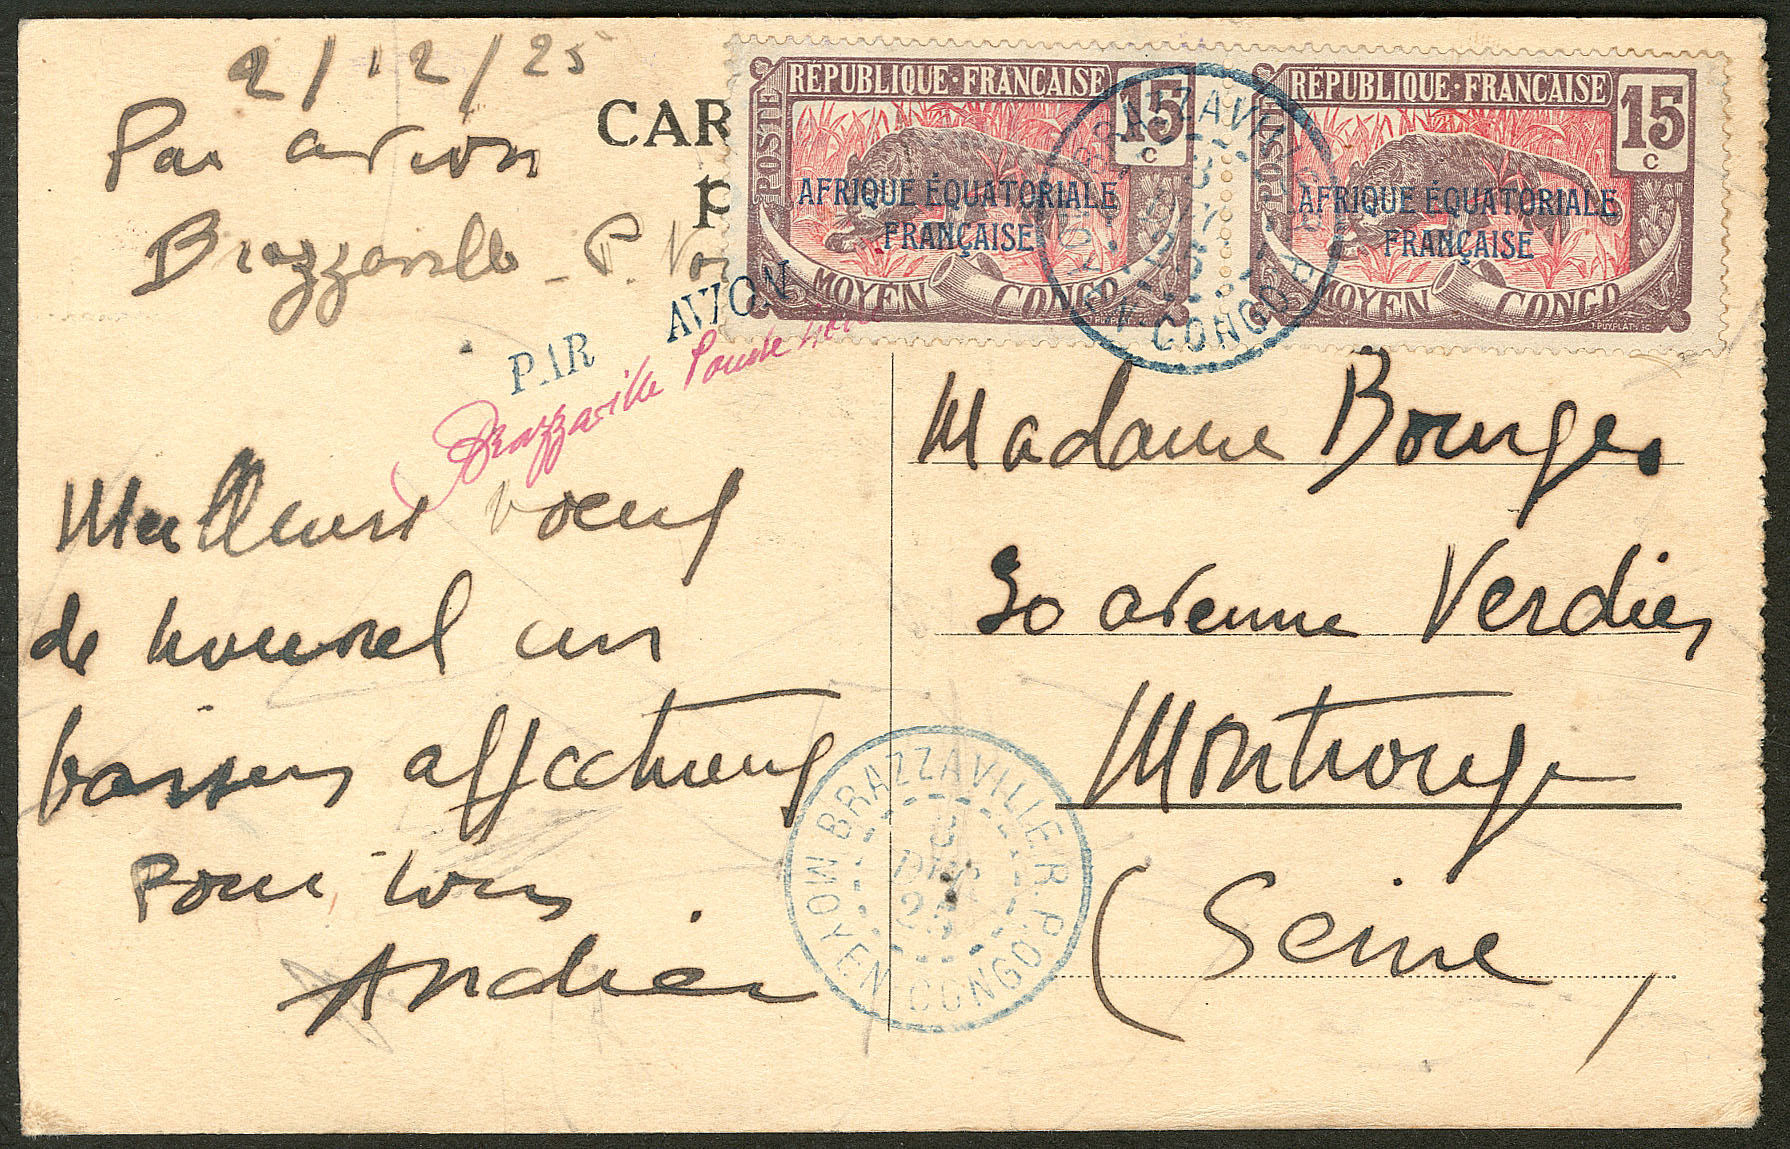 2/12/25
Par avion
Brazzaville - P. Noi
CAR
P
RÉPUBLIQUE·FRANÇAISE
15
C
POSTE
AFRIQUE ÉQUATORIALE
FRANÇAISE
MOYEN CONGO
J.PUYPLAT SC
RÉPUBLIQUE·FRANÇAISE
15
C
POSTE
AFRIQUE ÉQUATORIALE
FRANÇAISE
MOYEN CONGO
J.PUYPLAT SC
BRAZZAVILLE R.P.
MOYEN CONGO
PAR AVION
Brazzaville Pointe Noire
Meilleurs voeux
de nouvel an
baisers affectueux
pour tous
André
Madame Bourges
30 avenue Verdier
Montrouge
(Seine)
BRAZZAVILLE R.P.
3
DÉC
25
MOYEN CONGO